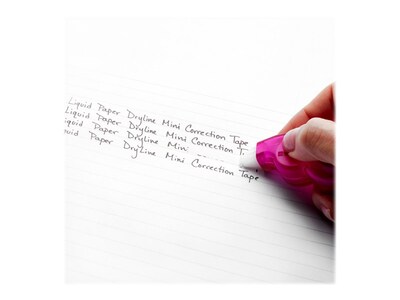 Liquid Paper DryLine Mini Correction Tape
Liquid Paper DryLine Mini Correction T.
iquid Paper DryLine Min
uid Paper DryLine Mini Correction Tape